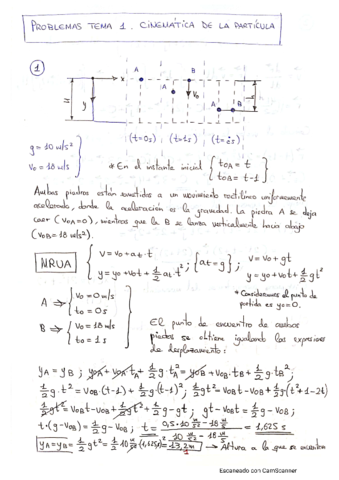 PROBLEMAS TEMA 1. CINEMÁTICA DE LA PARTÍCULA
1
x A B A B
y v₀ h
(t=0s) (t=1s) (t=¿s)
g = 10 m/s²
v₀ = 18 m/s
* En el instante inicial { t₀A = t
t₀B = t-1
Ambas piedras están sometidas a un movimiento rectilíneo uniformemente
acelerado, donde la aceleración es la gravedad. La piedra A se deja
caer (v₀A=0), mientras que la B se lanza verticalmente hacia abajo
(v₀B=18 m/s²).
MRUA { v = v₀ + a·t ; {at=g} ; v = v₀ + gt
y = y₀ + v₀t + 1/2 at² ; y = y₀ + v₀t + 1/2 gt²
* Consideramos el punto de
partida es y=0.
A ⇒ { v₀ = 0 m/s
t₀ = 0s
B ⇒ { v₀ = 18 m/s
t₀ = 1s
El punto de encuentro de ambas
piedras se obtiene igualando las expresiones
de desplazamiento:
yA = yB ; y₀A + v₀A tA + 1/2 g·tA² = y₀B + v₀B·tB + 1/2 g·tB² ;
1/2 g·t² = v₀B·(t-1) + 1/2 g·(t-1)² ; 1/2 gt² = v₀Bt - v₀B + 1/2 g(t²+1-2t)
1/2 gt² = v₀Bt - v₀B + 1/2 gt² + 1/2 g - gt ; gt - v₀Bt = 1/2 g - v₀B ;
t·(g-v₀B) = 1/2 g - v₀B ; t = (0,5·10 m/s² - 18 m/s) / (10 m/s² - 18 m/s) = 1,625 s
yA = yB = 1/2 gt² = 1/2 10 m/s² (1,625s)² = 13,2m → Altura a la que se encuentran
Escaneado con CamScanner